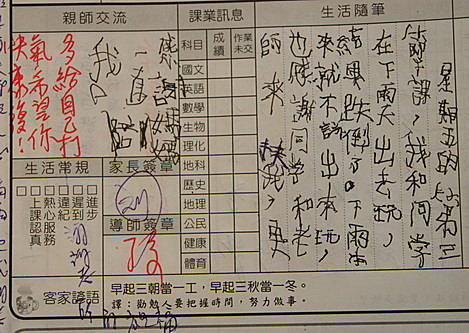 親師交流
課業訊息
生活隨筆
科目
成績
作業未交
國文
英語
數學
生物
理化
地科
歷史
地理
公民
健康
體育
星期五的 第三
節下課，我和同學
在下雨天出去玩，
跌倒了。下雨
來就不 出來玩，
也感謝同學和老
師來 我，更
感謝媽媽
一直
陪
我。
多給自己打
氣，希望你
快康復！
生活常規
進步
遲到
違紀
熱心服務
上課認真
家長簽章
導師簽章
客家諺語
早起三朝當一工，早起三秋當一冬。
譯：勸勉人要把握時間，努力做事。